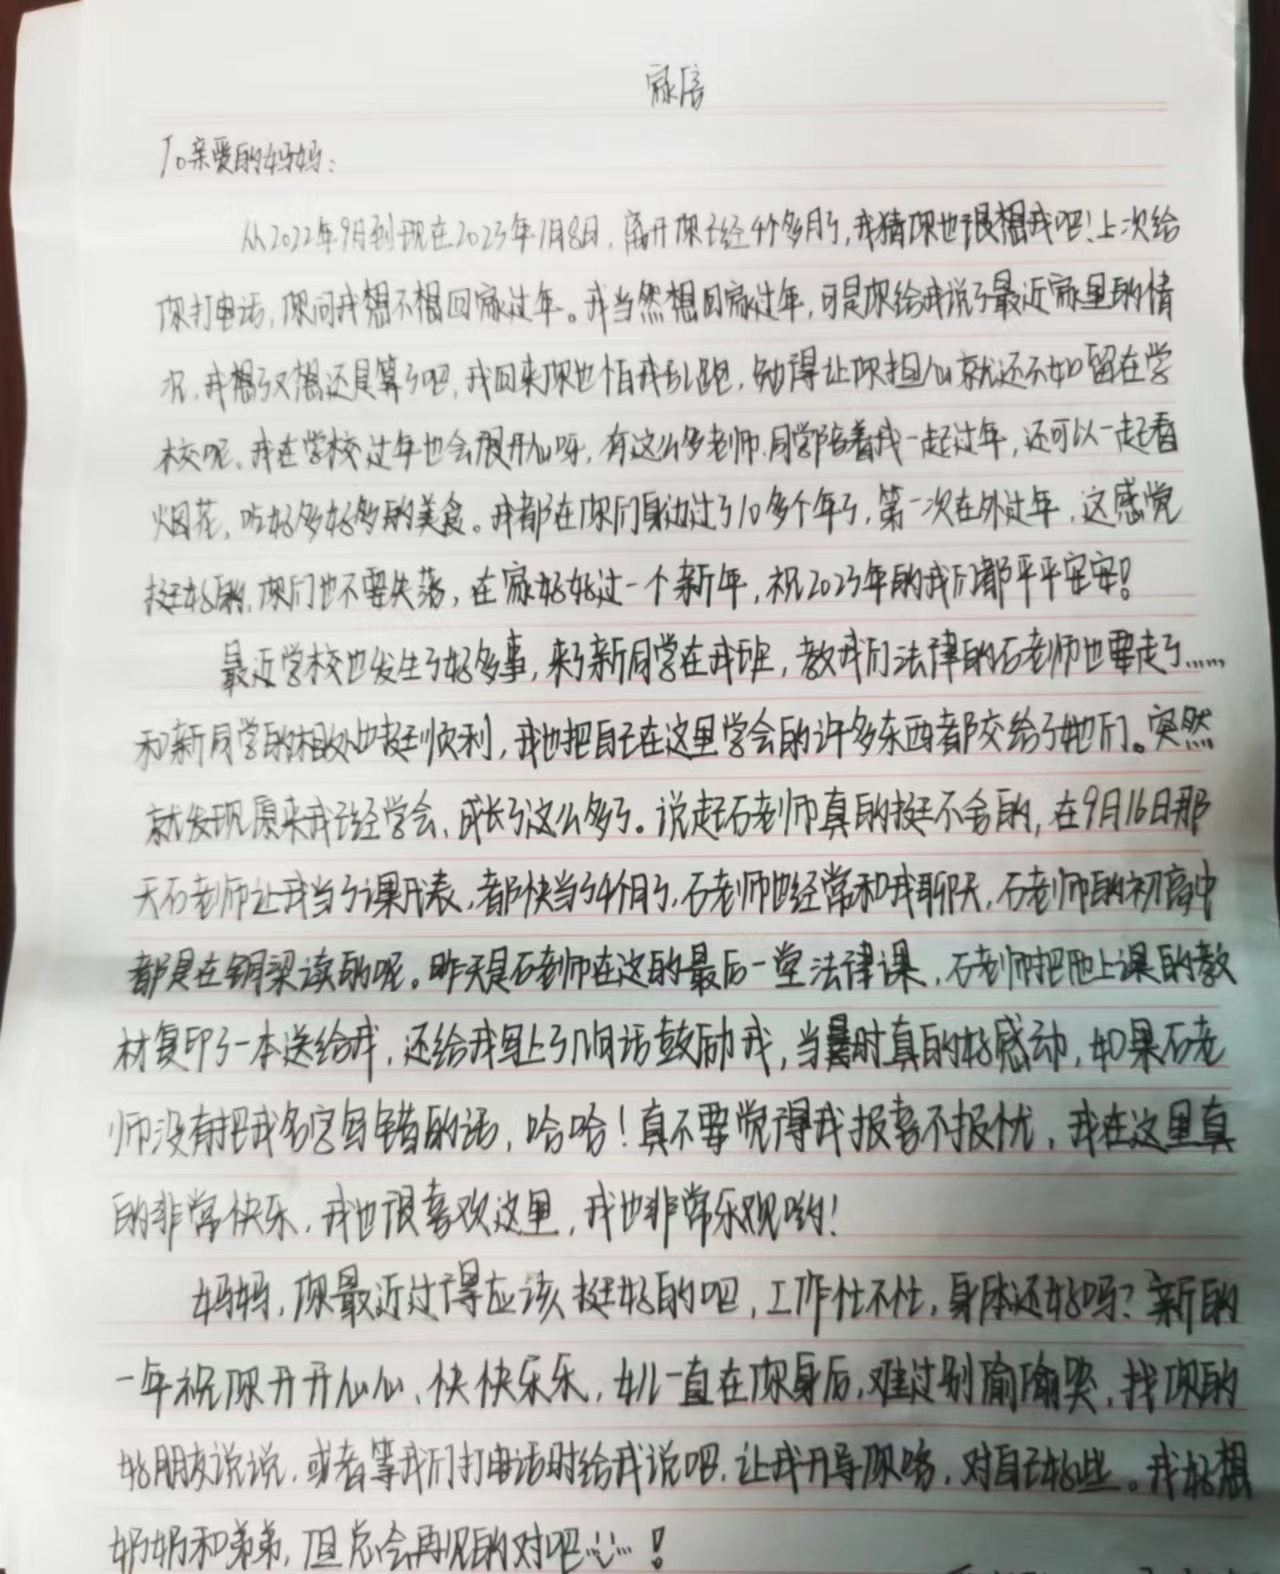 家信
To亲爱的妈妈：
从2022年9月到现在2023年1月8日，离开你已经4个多月了，我猜你也很想我吧！上次给
你打电话，你问我想不想回家过年。我当然想回家过年，可是你给我说了最近家里的情
况，我想了又想还是算了吧，我回来你也怕我乱跑，勉得让你担心就还不如留在学
校呢、我在学校过年也会很开心呀，有这么多老师、同学陪着我一起过年，还可以一起看
烟花，吃好多好多的美食。我都在你们身边过了10多个年了，第一次在外过年，这感觉
挺好的，你们也不要失落，在家好好过一个新年，祝2023年的我们都平平安安！
最近学校也发生了好多事，来了新同学在我班，教我们法律的石老师也要走了……
和新同学的相处也挺顺利，我也把自己在这里学会的许多东西都交给了她们。突然
就发现原来我已经学会、成长了这么多了。说起石老师真的挺不舍的，在9月16日那
天石老师让我当了课代表，都快当了4个月了，石老师也经常和我聊天，石老师的初高中
都是在铜梁读的呢。昨天是石老师在这的最后一堂法律课，石老师把他上课的教
材复印了一本送给我，还给我写上了几句话鼓励我，当时真的好感动，如果石老
师没有把我名字写错的话，哈哈！真不要觉得我报喜不报忧，我在这里真
的非常快乐，我也很喜欢这里，我也非常乐观哟！
妈妈，你最近过得应该挺好的吧，工作忙不忙，身体还好吗？新的
一年祝你开开心心、快快乐乐，女儿一直在你身后，难过别偷偷哭，找你的
好朋友说说，或者等我们打电话时给我说吧，让我开导你咯，对自己好些。我好想
奶奶和弟弟，但总会再见的对吧……！